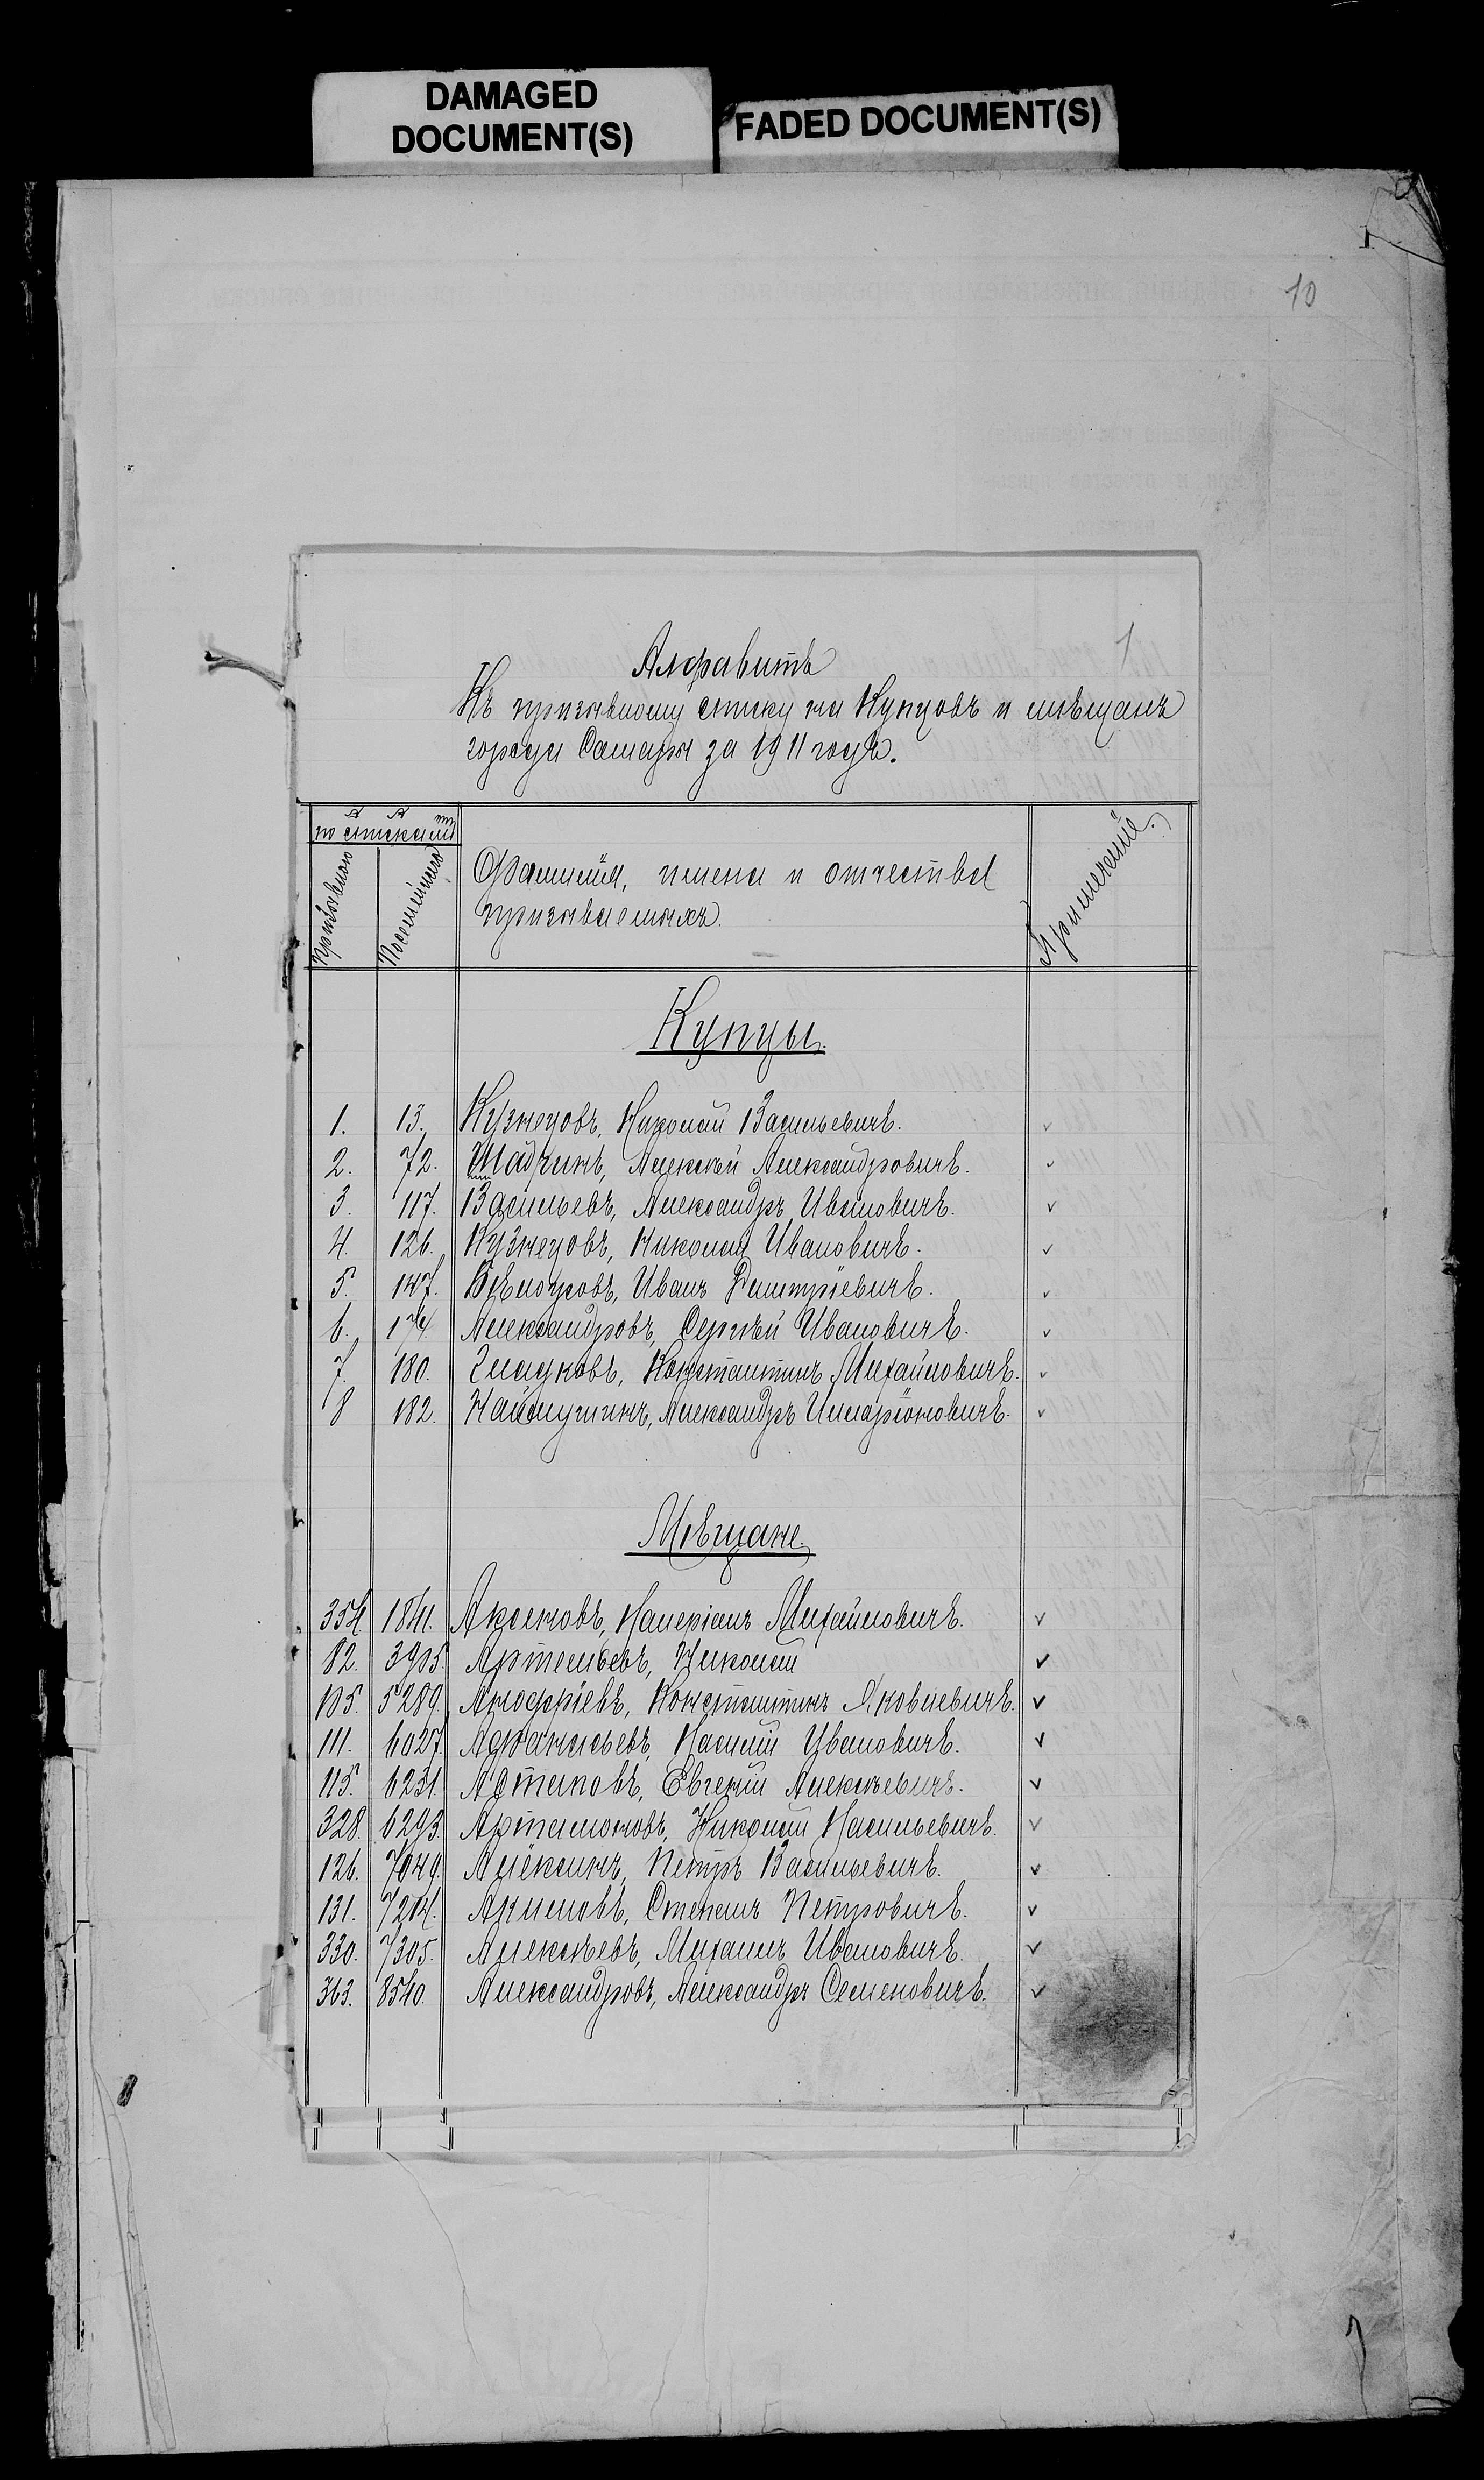 DAMAGED
DOCUMENT(S)
FADED DOCUMENT(S)
10
1
Алфавитъ
Къ призывному списку на Купцовъ и мѣщанъ
города Самары за 1911 годъ.
по спискамъ
призывного
Посемейного
Фамилія, имена и отчества
призываемыхъ.
Примечаніе.
Купцы.
1. 13. Кузнецовъ, Николай Васильевичъ.
2. 72. Шадринъ, Алексѣй Александровичъ.
3. 117. Васильевъ, Александръ Ивановичъ.
4. 126. Кузнецовъ, Николай Ивановичъ.
5. 147. Бѣлоусовъ, Иванъ Дмитріевичъ.
6. 174. Александровъ, Сергѣй Ивановичъ.
7. 180. Гладковъ, Константинъ Михайловичъ.
8 182. Александръ Илларіоновичъ.
Мѣщане.
354. 1841. Аксеновъ, Валеріанъ Михайловичъ.
82. 3905. Артемьевъ, Николай
105. 5289. Ануфріевъ, Константинъ Яковлевичъ.
111. 6027. Афанасьевъ, Василій Ивановичъ.
115. 6231. Евгеній Алексѣевичъ.
328. 6293. Артамоновъ, Николай Васильевичъ.
126. 7049. Алёкинъ, Петръ Васильевичъ.
131. 7204. Акимовъ, Степанъ Петровичъ.
330. 7305. Алексѣевъ, Михаилъ Ивановичъ.
363. 8540. Александровъ, Александръ Семеновичъ.